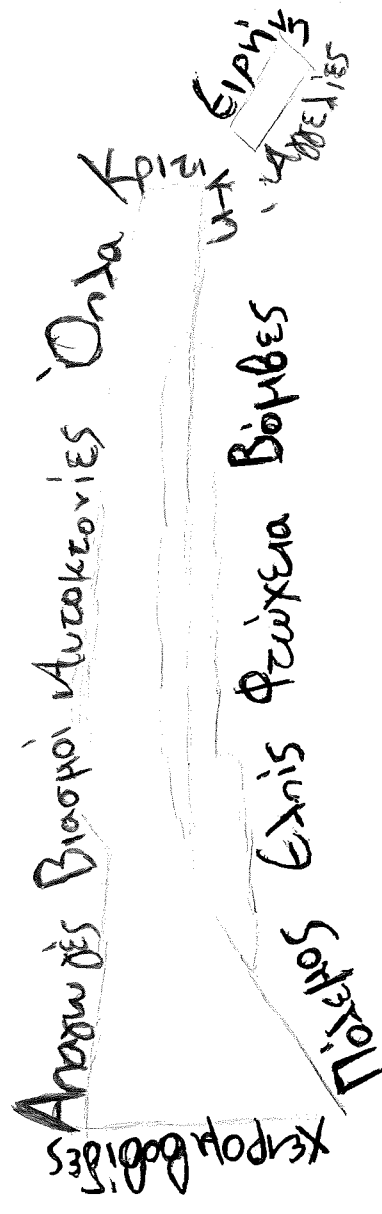 Απαγωγές Βιασμοί Αυτοκτονίες Όπλα
Αγγελίες
Πόλεμος Ελπίς Φτώχεια Βόμβες
χειρομβοβίδες